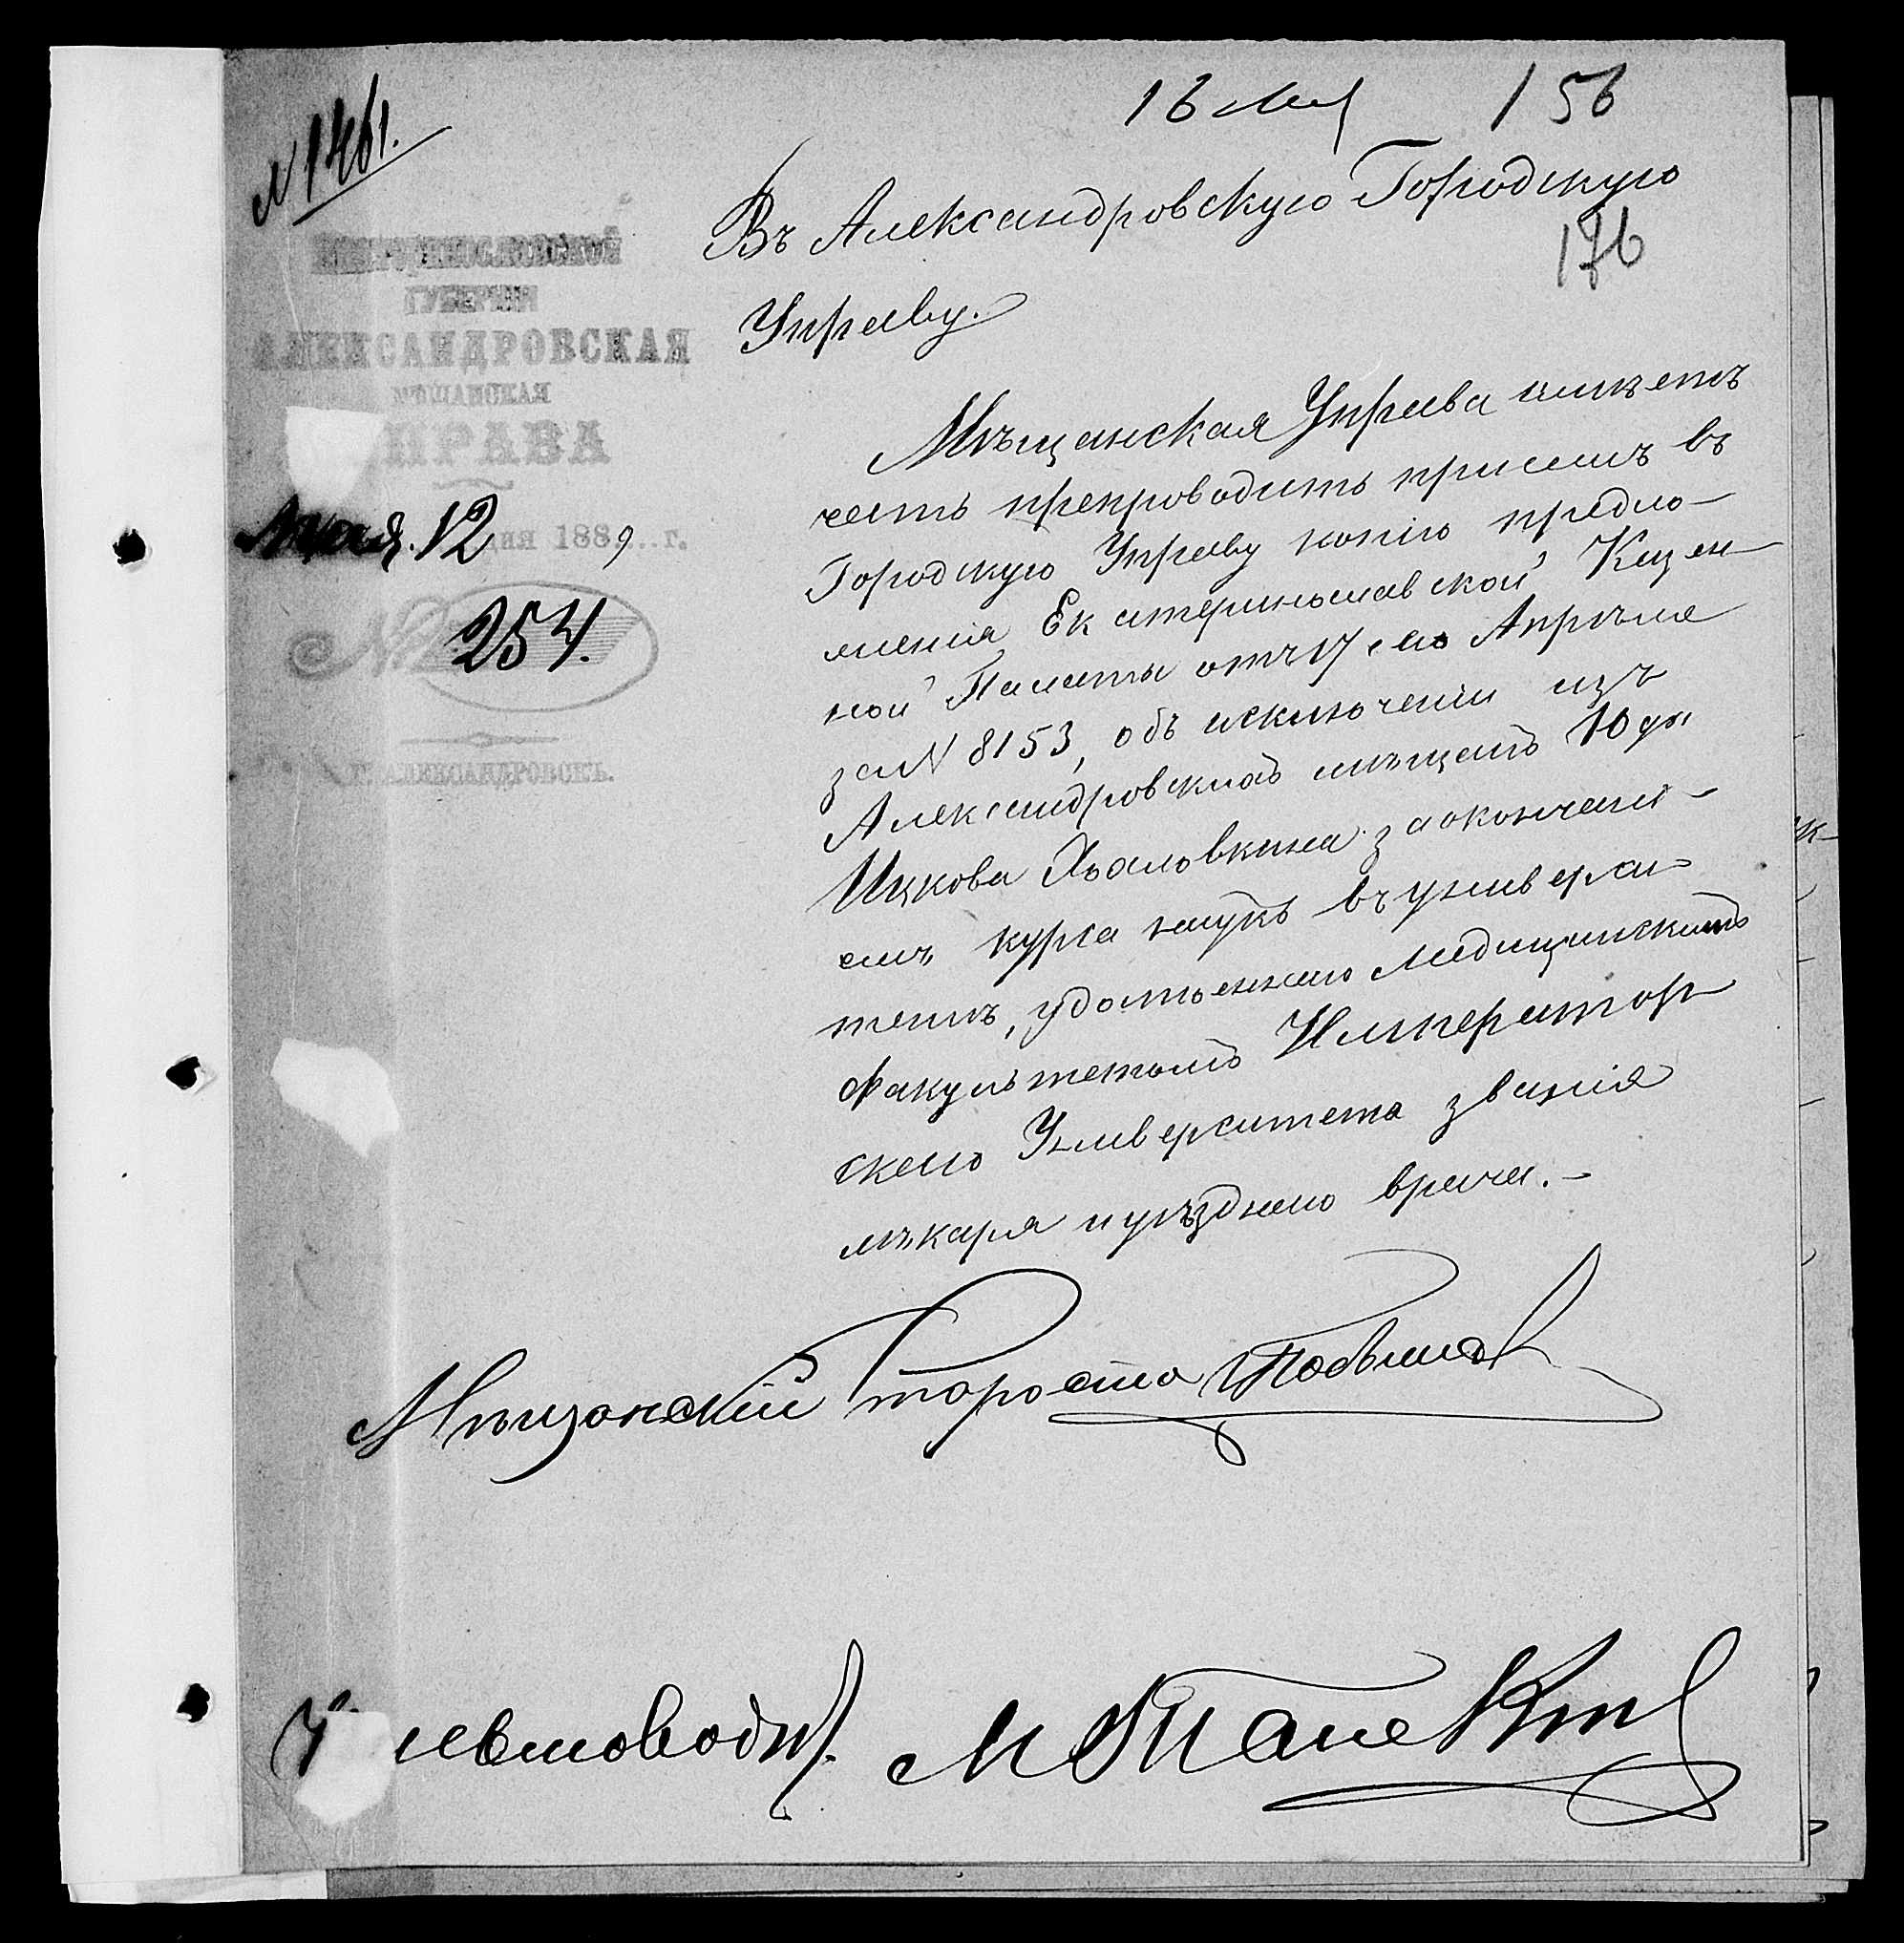 № 1461.
16 Мая
156
176
ЕКАТЕРИНОСЛАВСКОЙ
ГУБЕРНІИ
АЛЕКСАНДРОВСКАЯ
МѢЩАНСКАЯ
УПРАВА
Мая 12 дня 1889 г.
№ 254.
Г. АЛЕКСАНДРОВСКЪ.
Въ Александровскую Городскую
Управу.
Мѣщанская Управа имѣетъ
честь препроводить при семъ въ
Городскую Управу копію предло-
женія Екатеринославской Казен-
ной Палаты отъ 17 сего Апрѣля
за N 8153, объ исключеніи изъ
Александровскихъ мѣщанъ
Ицкова за окончані-
емъ курса наукъ въ универси-
тетѣ, удостоеннаго Медицинскимъ
факультетомъ Император
скаго Университета званія
лѣкаря и уѣзднаго врача.-
Мѣщанскій Староста